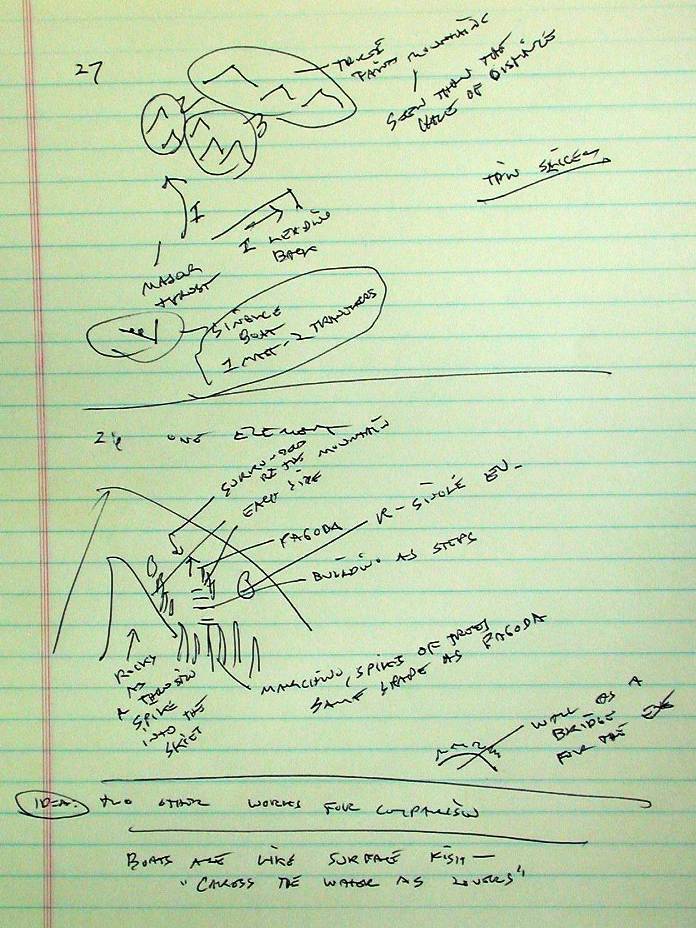 27
FAINT MOUNTAINS
SEEN THRU THE
HAZE OF DISTANCE
2
3
THIN SLICES
I
I LEADING
BACK
MAJOR
THRUST
SINGLE
BOAT
1 MAST - 2 TRAVELERS
ONE ELEMENT
SURROUNDED
BY THE MOUNTAIN
EACH SIDE
PAGODA
R - SINGLE EV-
BUILDING AS STEPS
ROCKS
AS
A THRUSTING
SPIKE
INTO THE
MARCHING, SPIKES OF TREES
SAME SHAPE AS PAGODA
WALL AS A
BRIDGE
FOR THE EYE
IDEA: TWO OTHER WORKS FOR COMPARISON
BOATS ARE LIKE SURFACE FISH -
"CARESS THE WATER AS LOVERS"